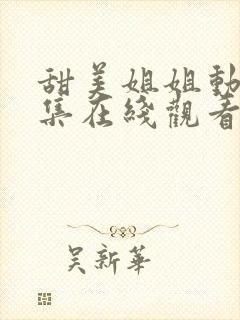 甜美姐姐動
集在綫觀看
吴新華